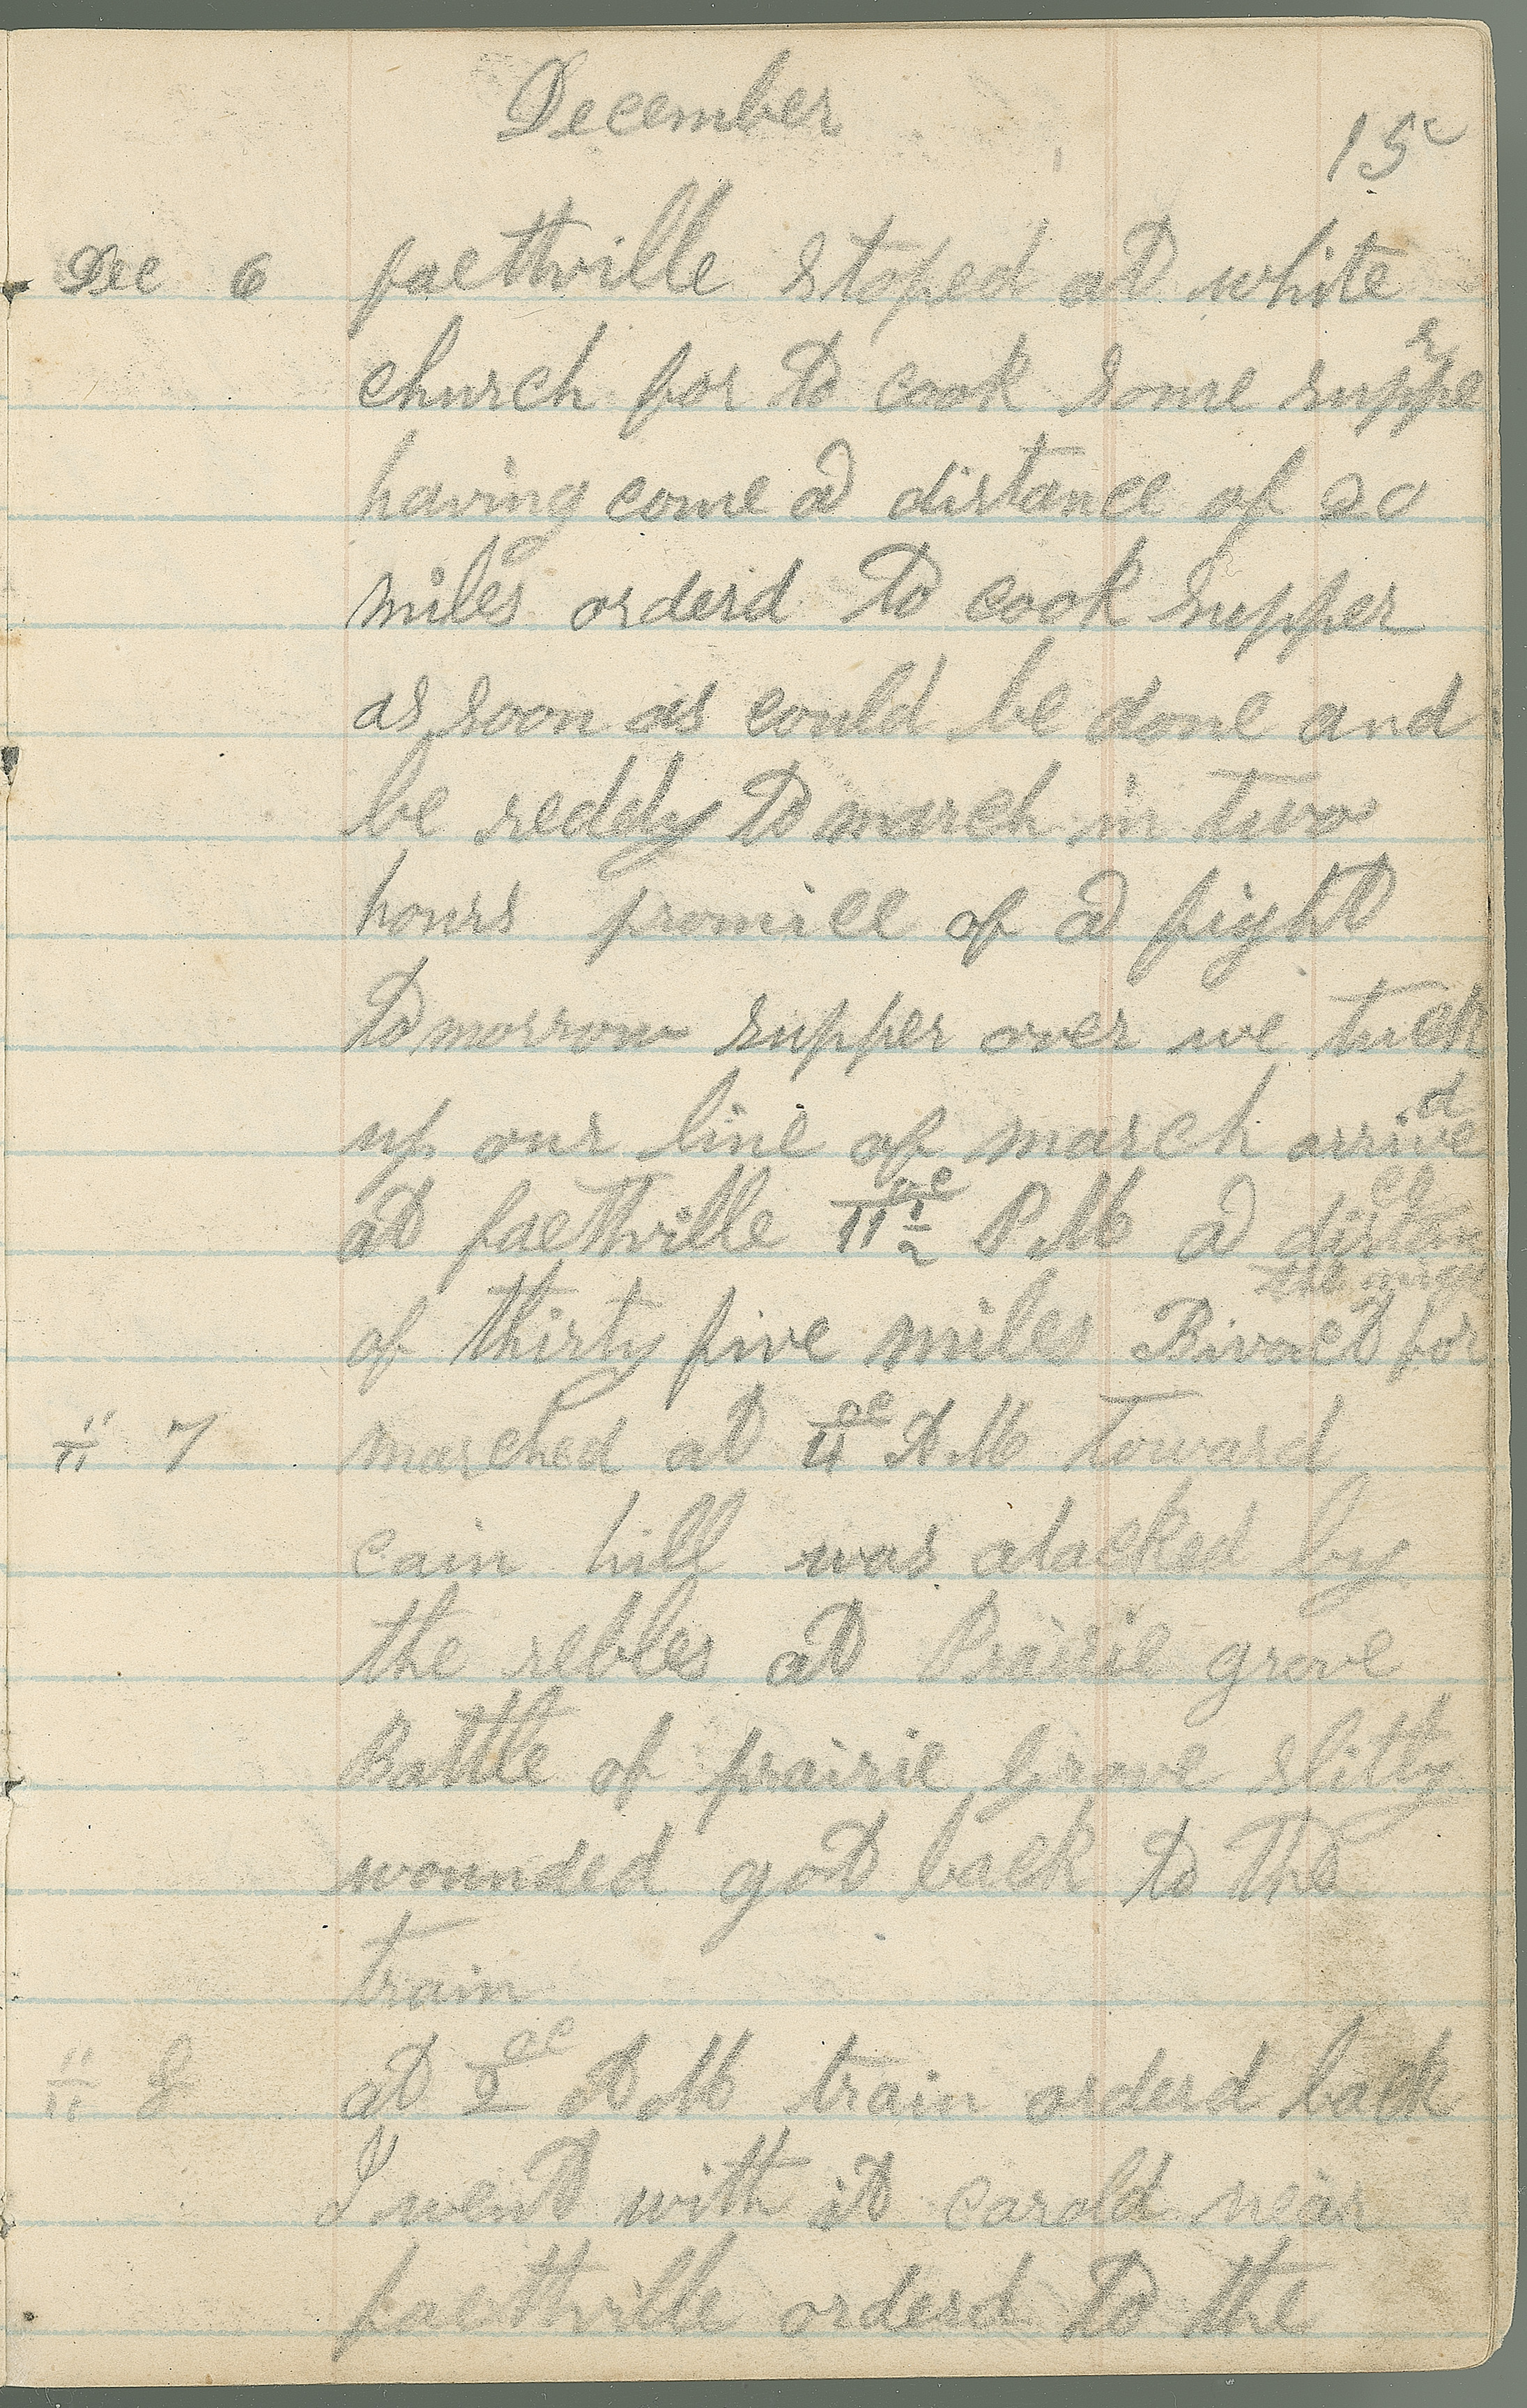 December
15
Dec 6 faethville stoped at white
church for to cook some supper
having come a distance of 20
miles orderd to cook supper
as soon as could be done and
be reddy to march in two
hours promice of a fight
tomorrow supper over we tuck
up our line of march arrived
at faethville 11 1/2 P M a distance
of thirty five miles Bivoct for
the night
" 7 marched at 4 A M toward
cain hill was atacked by
the rebles at Prairie grove
Battle of prairie Grove slitty
wounded got back to the
train
" 8 at 2 A M train orderd back
I went with it carold near
faethville orderd to the